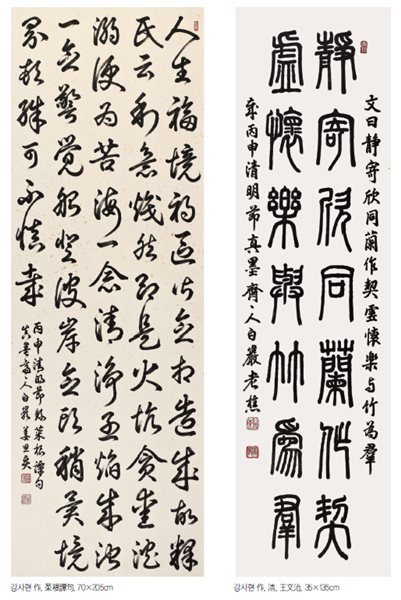 人生福境禍區皆念想造成故釋
氏云利慾熾然即是火坑貪愛沈
溺便為苦海一念清淨烈焰成池
一念警覺船登彼岸念頭稍異境
界頓殊可不慎哉
丙申清明節錄菜根譚句
真墨齋人白巖姜思
강사현 作, 菜根譚句, 70×205cm
文曰靜寄欣同蘭作契虛懷樂与竹為羣
靜寄欣同蘭作契
虛懷樂與竹為羣
丙申清明節真墨齋人白巖老樵
강사현 作, 清, 王文治, 35×135cm